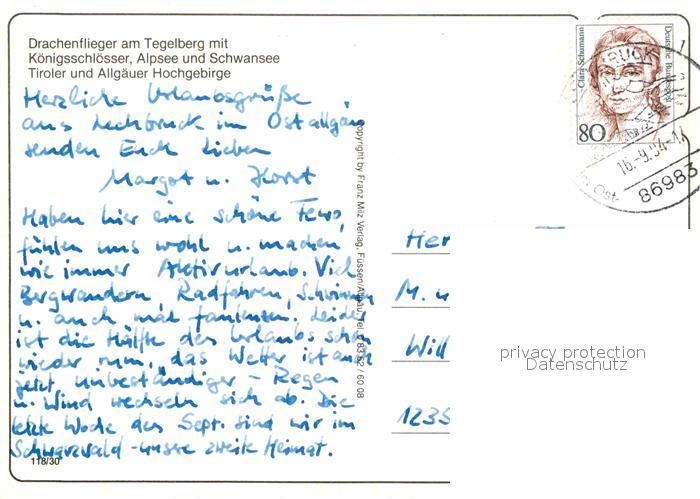 Drachenflieger am Tegelberg mit
Königsschlösser, Alpsee und Schwansee
Tiroler und Allgäuer Hochgebirge
Herzliche Urlaubsgrüße
aus Lechbruck im Ostallgäu
senden Euch lieben
Margot u. Horst
Haben hier eine schöne Fewo,
fühlen uns wohl u. machen
wie immer Aktivurlaub. Viel
Bergwandern, Radfahren, Schwimmen
u. auch mal faulenzen. Leider
ist die Hälfte des Urlaubs schon
wieder rum, das Wetter ist auch
jetzt unbeständiger - Regen
u. Wind wechseln sich ab. Die
letzte Woche des Sept. sind wir im
Schwarzwald - unsere zweite Heimat.
118/30
Copyright by Franz Milz Verlag, Füssen/Allgäu, Tel. 0 83 62 / 60 08
Clara Schumann
Deutsche Bundespost
80
16.-9.94-14
86983
Her
M. u
Will
1235
privacy protection
Datenschutz